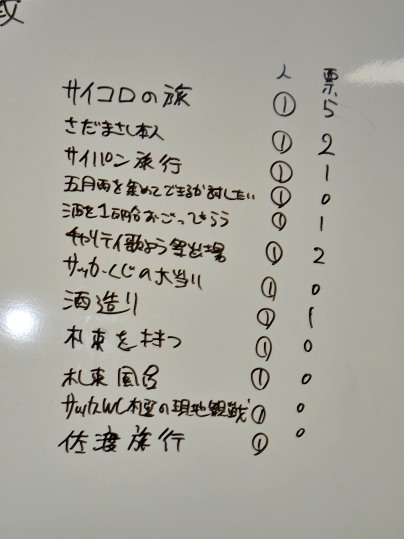 人 票
サイコロの旅 ① 5
さだまさし本人 ① 2
サイパン旅行 ① 1
五月雨を集めてできるか試したい ① 0
酒を1万円分おごってもらう ① 1
チャリティ歌よう祭出場 ① 2
サッカーくじの大当り ① 0
酒造り ① 1
札束を持つ ① 0
札束風呂 ① 0
サッカーWC の現地観戦 ① 0
佐渡旅行 ① 0